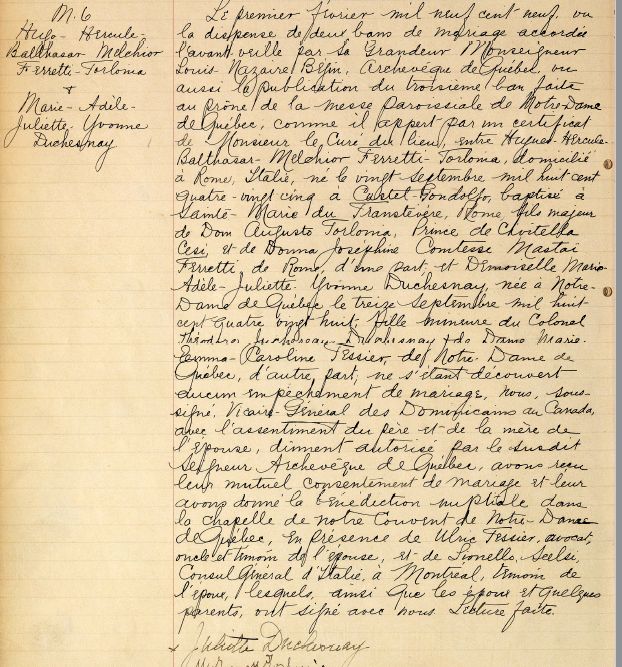 M. 6
Hugo-Hercule-
Balthasar Melchior
Ferretti-Torlonia
+
Marie-Adèle-
Juliette-Yvonne
Duchesnay
Le premier février mil neuf cent neuf, vu
la dispense de deux bans de mariage accordée
l'avant-veille par sa Grandeur Monseigneur
Louis Nazaire Bégin, Archevêque de Québec, vu
aussi la publication du troisième ban faite
au prône de la messe paroissiale de Notre-Dame
de Québec, comme il appert par un certificat
de Monsieur le Curé du lieu, entre Hugues-Hercule-
Balthasar-Melchior Ferretti-Torlonia, domicilié
à Rome, Italie, né le vingt Septembre mil huit cent
quatre-vingt cinq à Castel-Gondolfo, baptisé à
Sainte-Marie du Transtévère, Rome, fils majeur
de Dom Augusto Torlonia, Prince de Civitella
Cesi, et de Donna Joséphine Comtesse Mastai
Ferretti, de Rome, d'une part, et Demoiselle Marie-
Adèle-Juliette-Yvonne Duchesnay, née à Notre-
Dame de Québec le treize Septembre mil huit
cent quatre vingt huit, fille mineure du Colonel
Théodore Duchesnay & de Dame Marie-
Emma-Caroline Tessier, de Notre-Dame de
Québec, d'autre part, ne s'étant découvert
aucun empêchement de mariage, Nous, sous-
signé, Vicaire-Général des Dominicains au Canada,
avec l'assentiment du père et de la mère de
l'épouse, dûment autorisé par le susdit
Seigneur Archevêque de Québec, avons reçu
leur mutuel consentement de mariage et leur
avons donné la bénédiction nuptiale dans
la chapelle de notre Couvent de Notre-Dame
de Québec, en présence de Ulric Tessier, avocat,
oncle et témoin de l'épouse, et de Lionello Scelsi,
Consul Général d'Italie, à Montréal, témoin de
l'époux, lesquels, ainsi que les époux et quelques
parents, ont signé avec nous. Lecture faite.
x Juliette Duchesnay